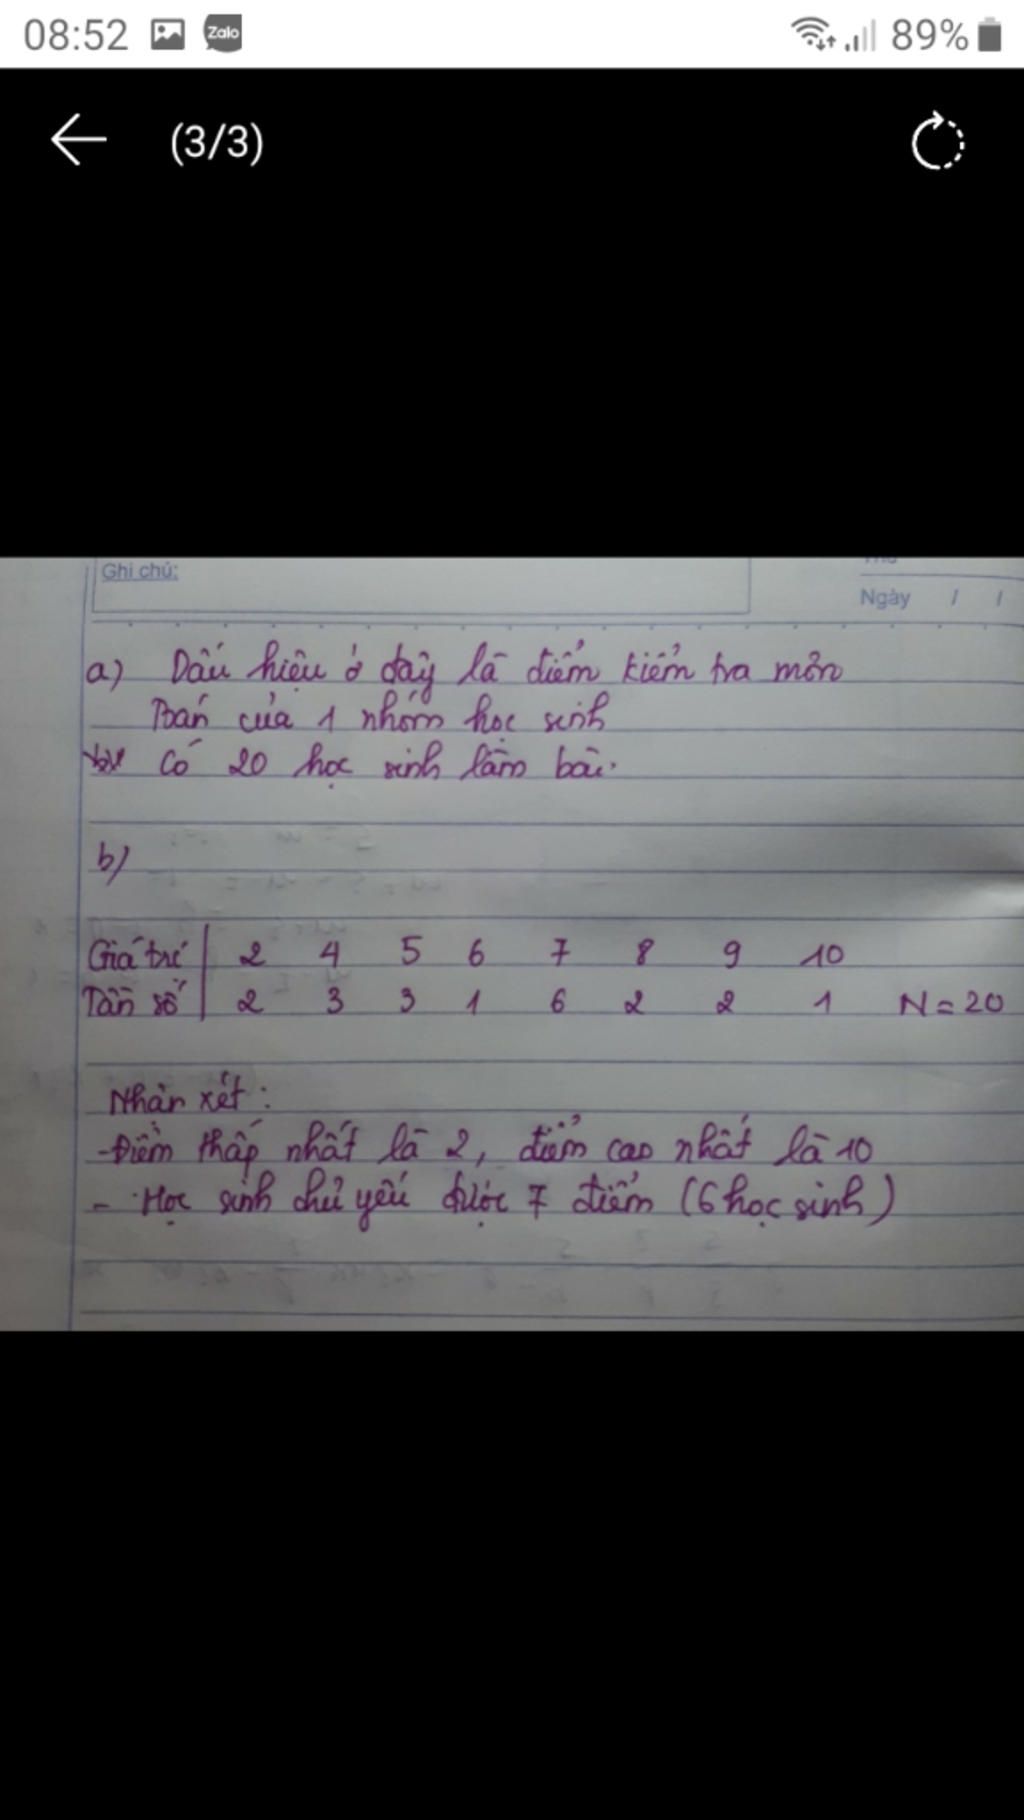 08:52 Zalo 89%
(3/3)
Ghi chú:
Ngày / /
a) Dấu hiệu ở đây là điểm kiểm tra môn
Toán của 1 nhóm học sinh
Có 20 học sinh làm bài.
b)
Giá trị 2 4 5 6 7 8 9 10
Tần số 2 3 3 1 6 2 2 1 N = 20
Nhận xét:
-Điểm thấp nhất là 2, điểm cao nhất là 10
- Học sinh chủ yếu được 7 điểm (6 học sinh)